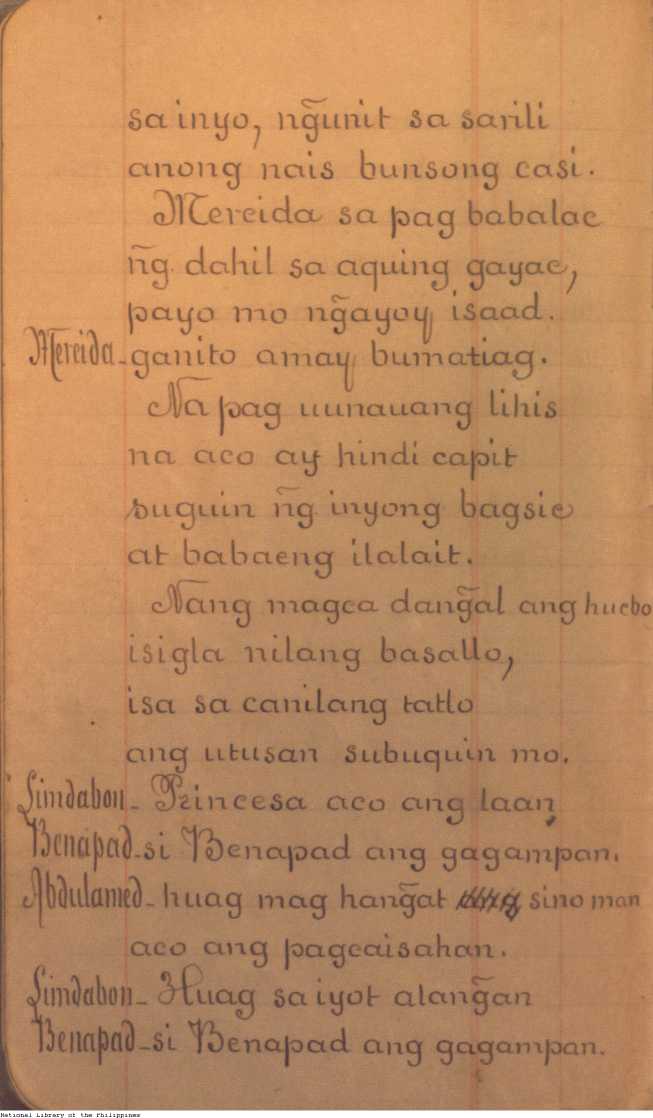 sa inyo, ng̃unit sa sarili
anong nais bunsong casi.
Mereida sa pag babalac
n͠g dahil sa aquing gayac,
payo mo ng̃ayoy isaad.
Mereida - ganito amay bumatiag.
Na pag uunauang lihis
na aco ay hindi capit
suguin n͠g inyong bagsic
at babaeng ilalait.
Nang magca dang̃al ang hucbo
isigla nilang basallo,
isa sa canilang tatlo
ang utusan subuquin mo.
Lindabon - Princesa aco ang laan,
Benapad - si Benapad ang gagampan.
Abdulamed - huag mag hang̃at sino man
aco ang pagcaisahan.
Lindabon - Huag sa iyot alang̃an
Benapad - si Benapad ang gagampan.
National Library of the Philippines